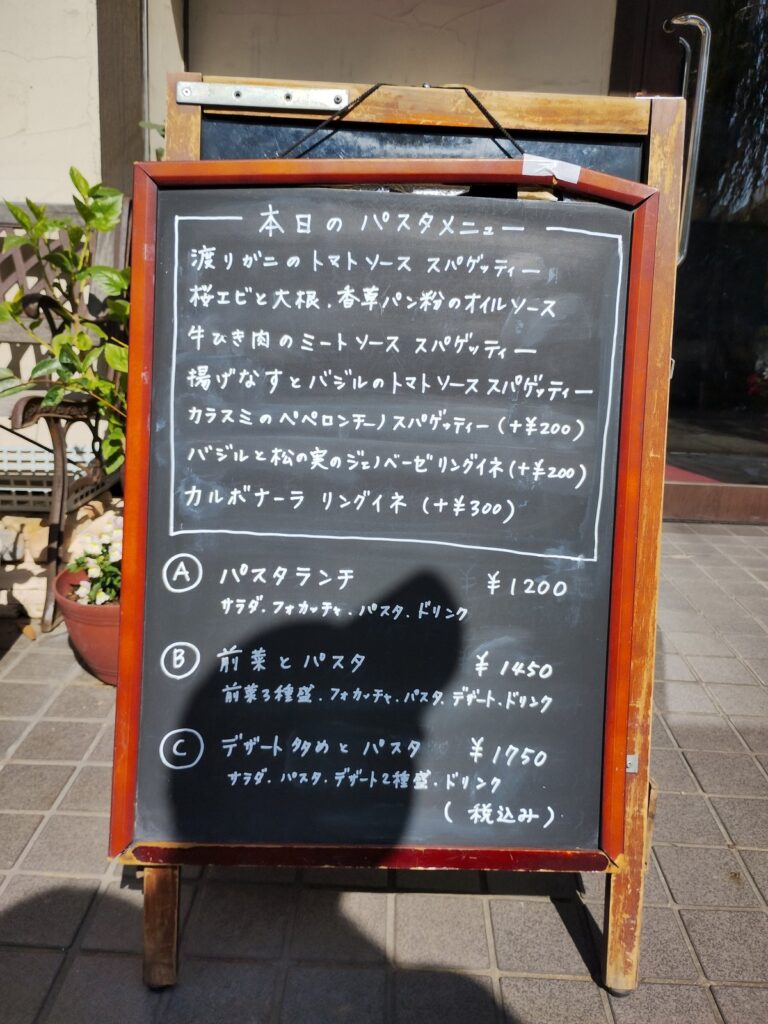 本日の パスタメニュー
渡りガニのトマトソース スパゲッティー
桜エビと大根、香草パン粉のオイルソース
牛ひき肉のミートソース スパゲッティー
揚げなすとバジルのトマトソース スパゲッティー
カラスミのペペロンチーノスパゲッティー (+¥200)
バジルと松の実のジェノベーゼリングイネ (+¥200)
カルボナーラ リングイネ (+¥300)
Ⓐ パスタランチ ¥1200
サラダ、フォカッチャ、パスタ、ドリンク
Ⓑ 前菜とパスタ ¥1450
前菜3種盛、フォカッチャ、パスタ、デザート、ドリンク
Ⓒ デザート多めと パスタ ¥1750
サラダ、パスタ、デザート2種盛、ドリンク
(税込み)